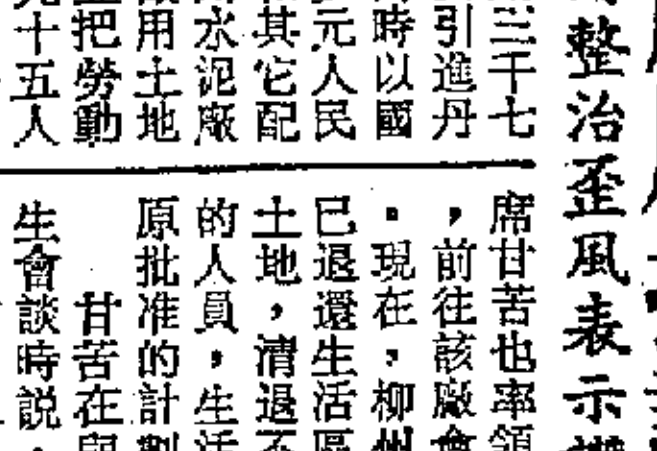 整治歪風表示
三千七
引進丹
時以國
元人民
其它配
水泥廠
用土地
把勞動
十五人
席甘苦也率領
，前往該廠會
。現在，柳州
已退還生活區
土地，清退不
的人員，生活
原批准的計劃
甘苦在與
生會談時説，